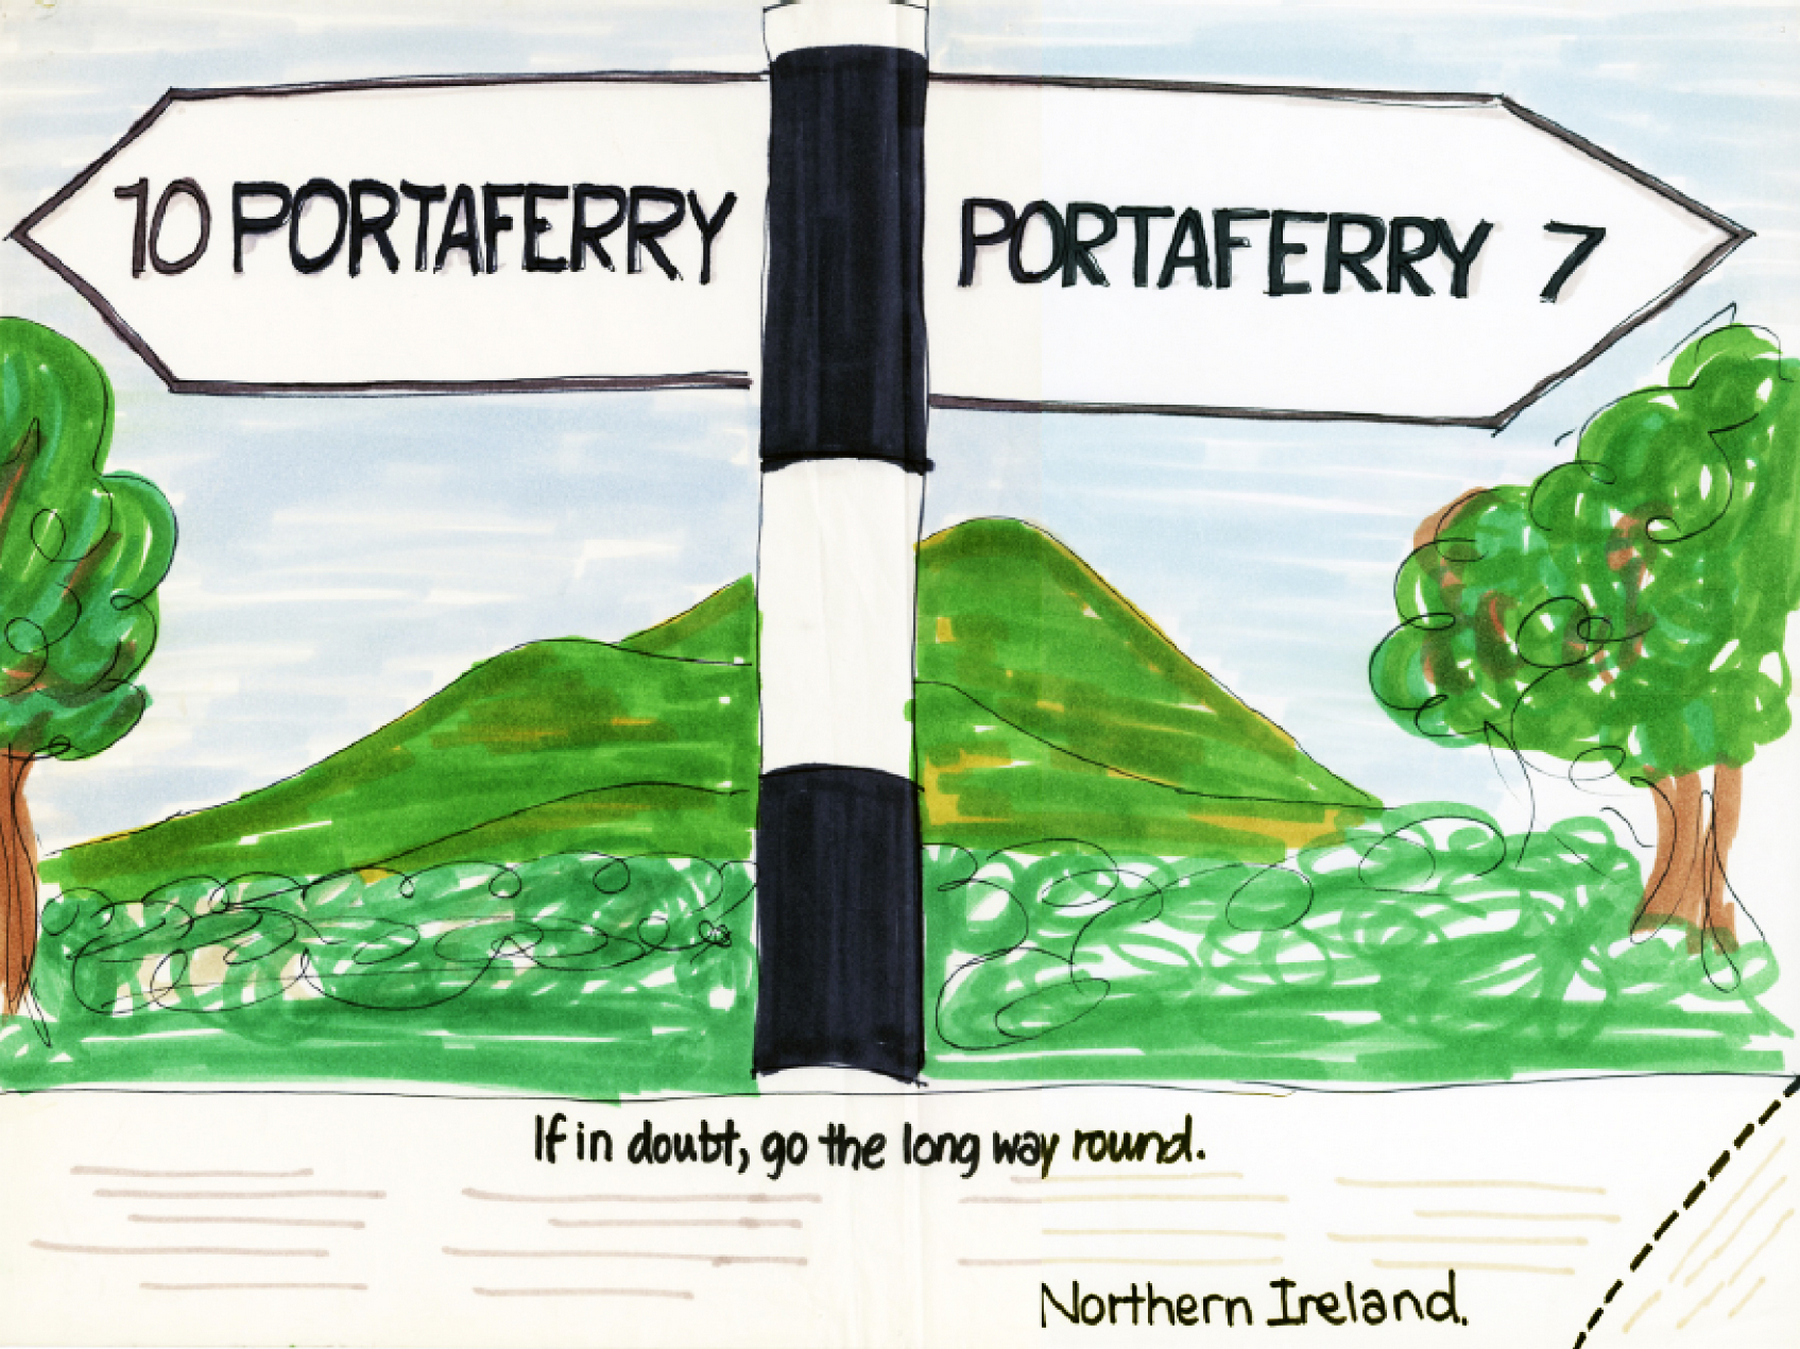 10 PORTAFERRY
PORTAFERRY 7
If in doubt, go the long way round.
Northern Ireland.